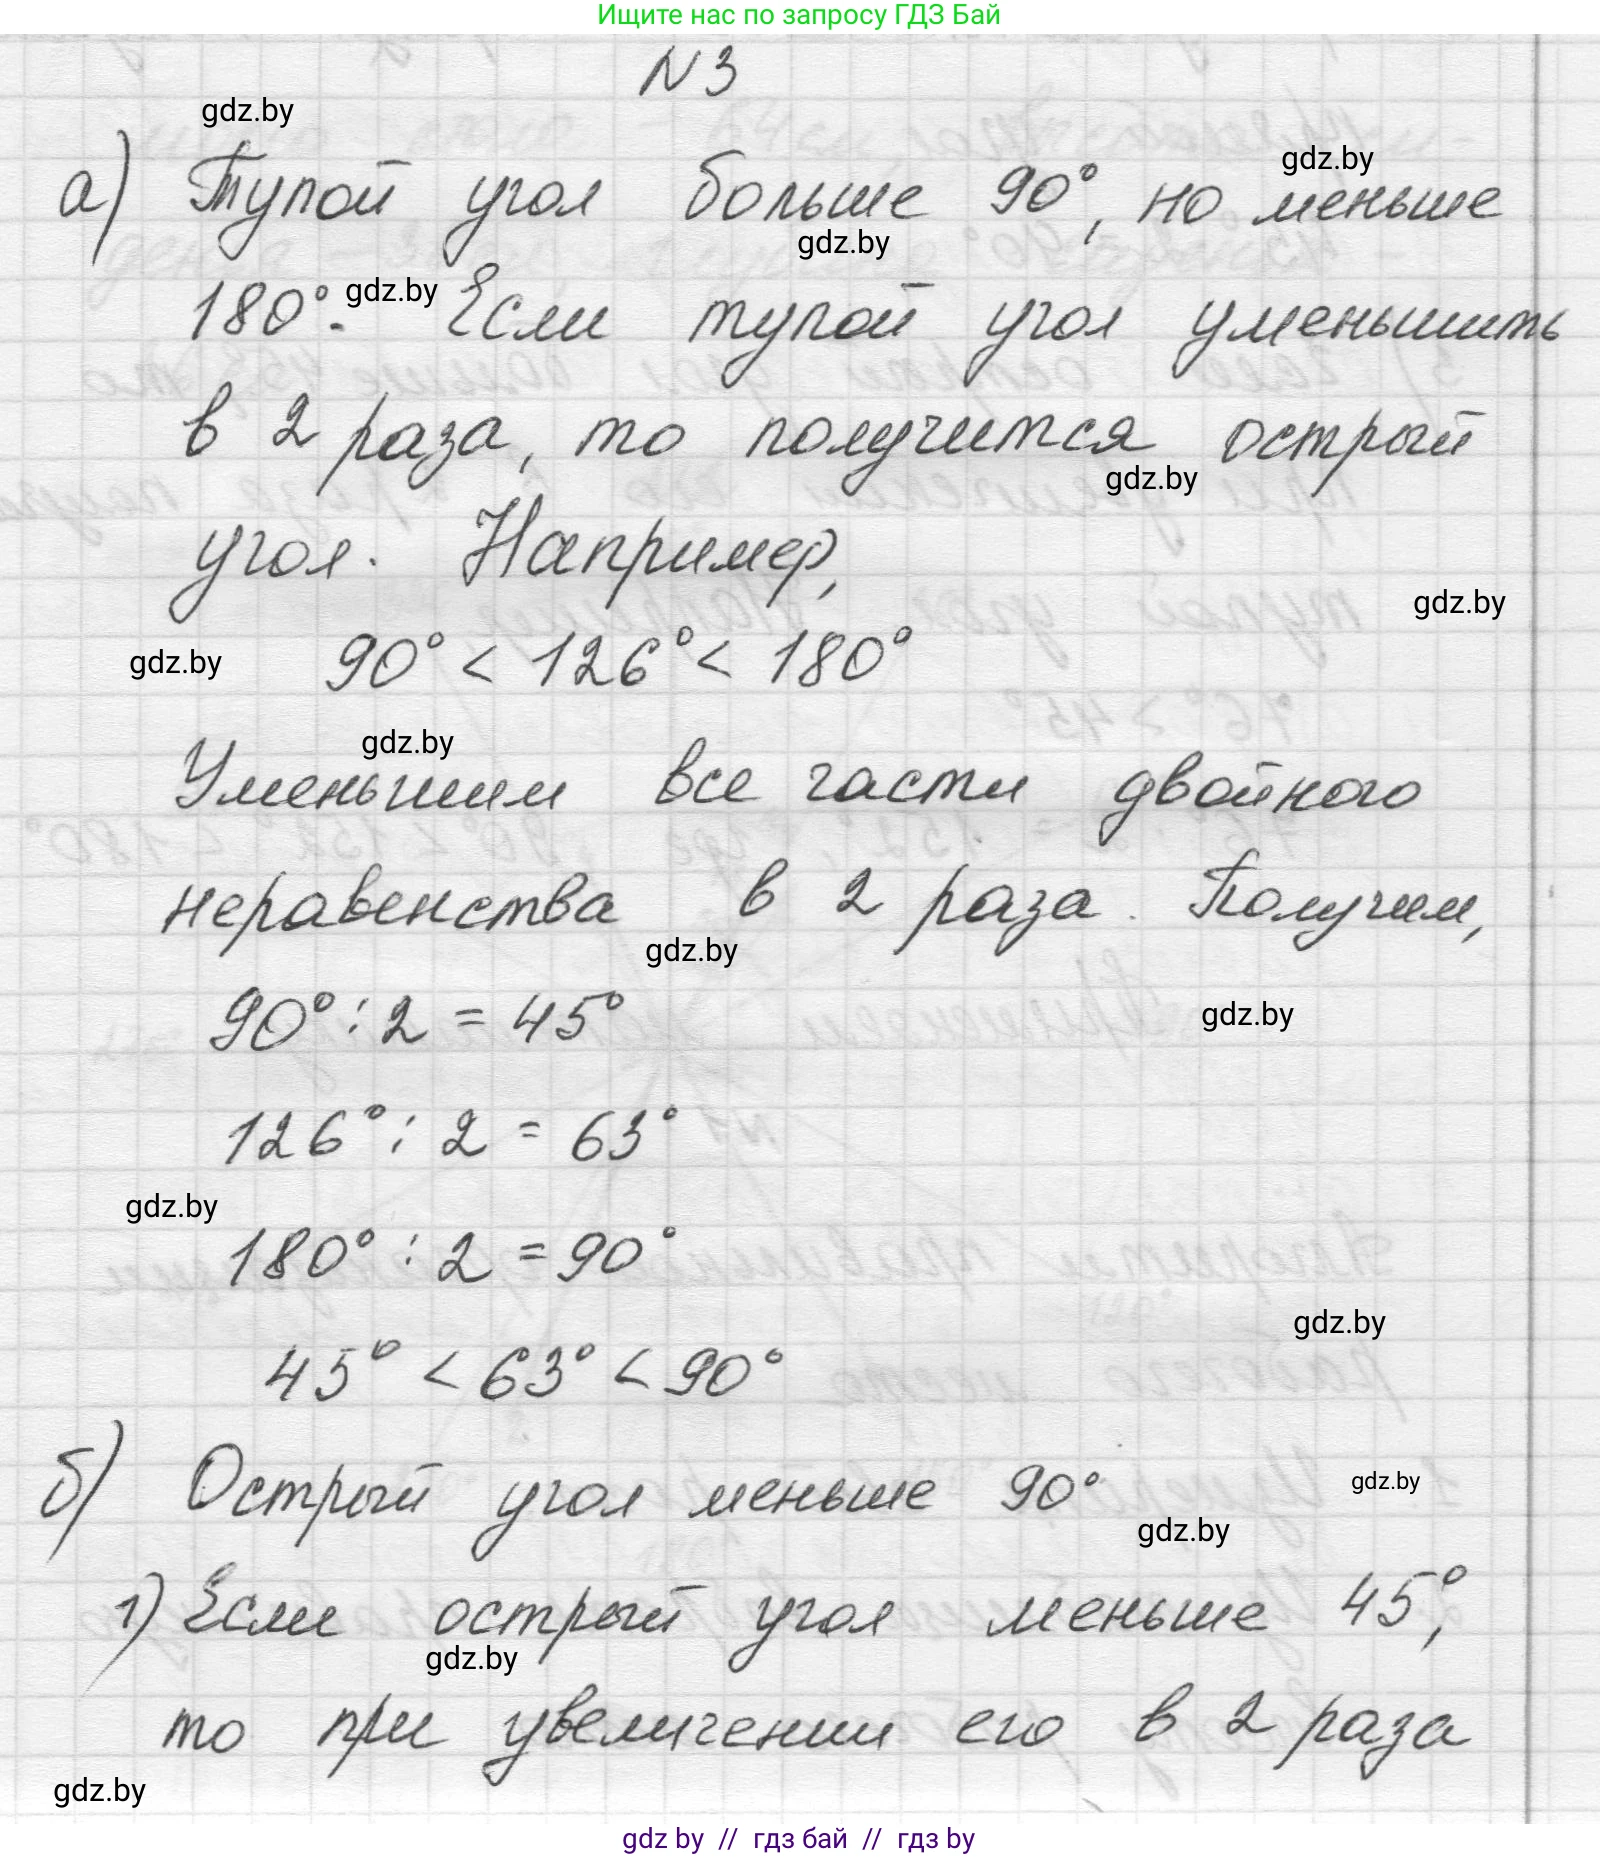 Ищите нас по запросу ГДЗ Бай
N3
gdz.by
а) Тупой угол больше 90°, но меньше
gdz.by
gdz.by
180°. Если тупой угол уменьшить
gdz.by
в 2 раза, то получится острый
gdz.by
угол. Например,
gdz.by
90° < 126° < 180°
gdz.by
gdz.by
Уменьшим все части двойного
неравенства в 2 раза. Получим,
gdz.by
90° : 2 = 45°
gdz.by
126° : 2 = 63°
gdz.by
180° : 2 = 90°
gdz.by
45° < 63° < 90°
б) Острый угол меньше 90°
gdz.by
gdz.by
1) Если острый угол меньше 45°,
gdz.by
то при увеличении его в 2 раза
gdz.by
gdz by // гдз бай // гдз by